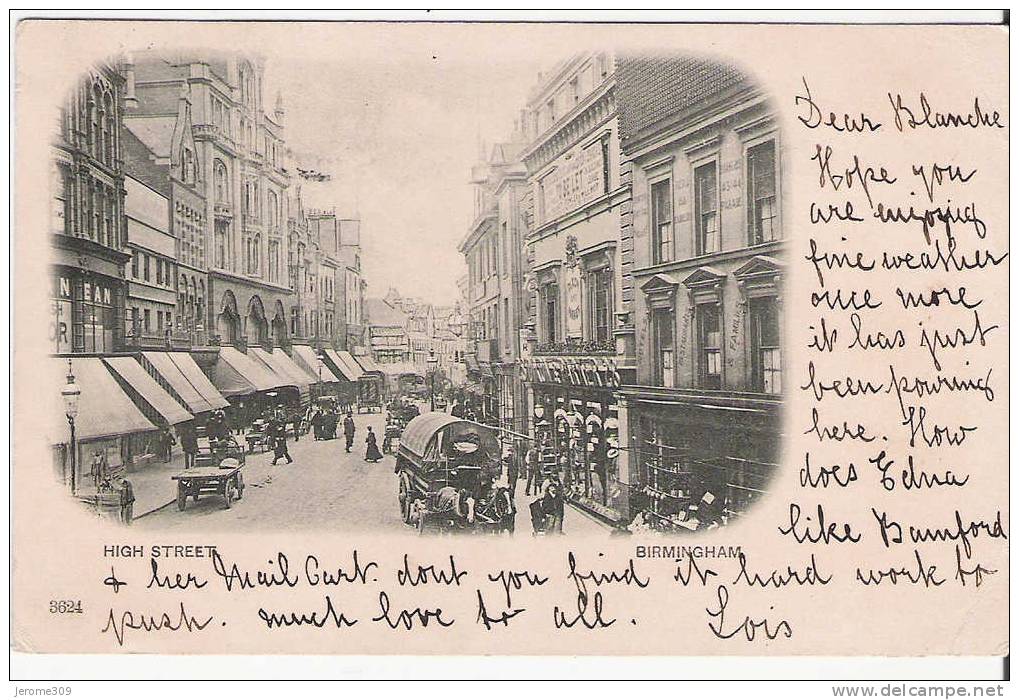 Dear Blanche
Hope you
are enjoying
fine weather
once more
it has just
been pouring
here. How
does Edna
like Bamford
& her Mail Cart. dont you find it hard work to
push. much love to all. Lois
HIGH STREET
BIRMINGHAM
3624
TO BE LET
Jerome309
delcampe.net